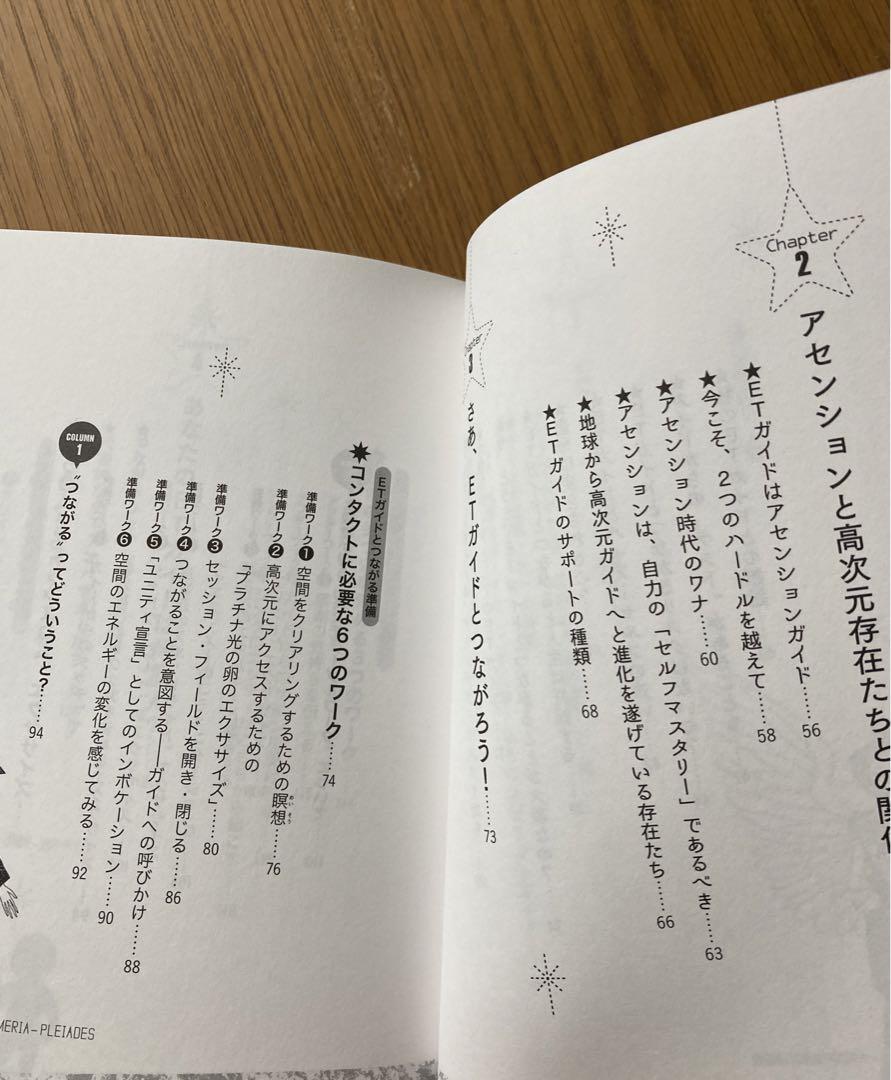 Chapter
2
アセンションと高次元存在たちとの関係
★ETガイドはアセンションガイド……56
★今こそ、2つのハードルを越えて……58
★アセンション時代のワナ……60
★アセンションは、自力の「セルフマスタリー」であるべき……63
★地球から高次元ガイドへと進化を遂げている存在たち……66
★ETガイドのサポートの種類……68
Chapter
3
さあ、ETガイドとつながろう!……73
ETガイドとつながる準備
コンタクトに必要な6つのワーク……74
準備ワーク❶ 空間をクリアリングするための瞑想……76
めいそう
準備ワーク❷ 高次元にアクセスするための
「プラチナ光の卵のエクササイズ」……80
準備ワーク❸ セッション・フィールドを開き・閉じる……86
準備ワーク❹ つながることを意図する——ガイドへの呼びかけ……88
準備ワーク❺ 「ユニティ宣言」としてのインボケーション……90
準備ワーク❻ 空間のエネルギーの変化を感じてみる……92
COLUMN
1
“つながる”ってどういうこと?……94
MERIA–PLEIADES